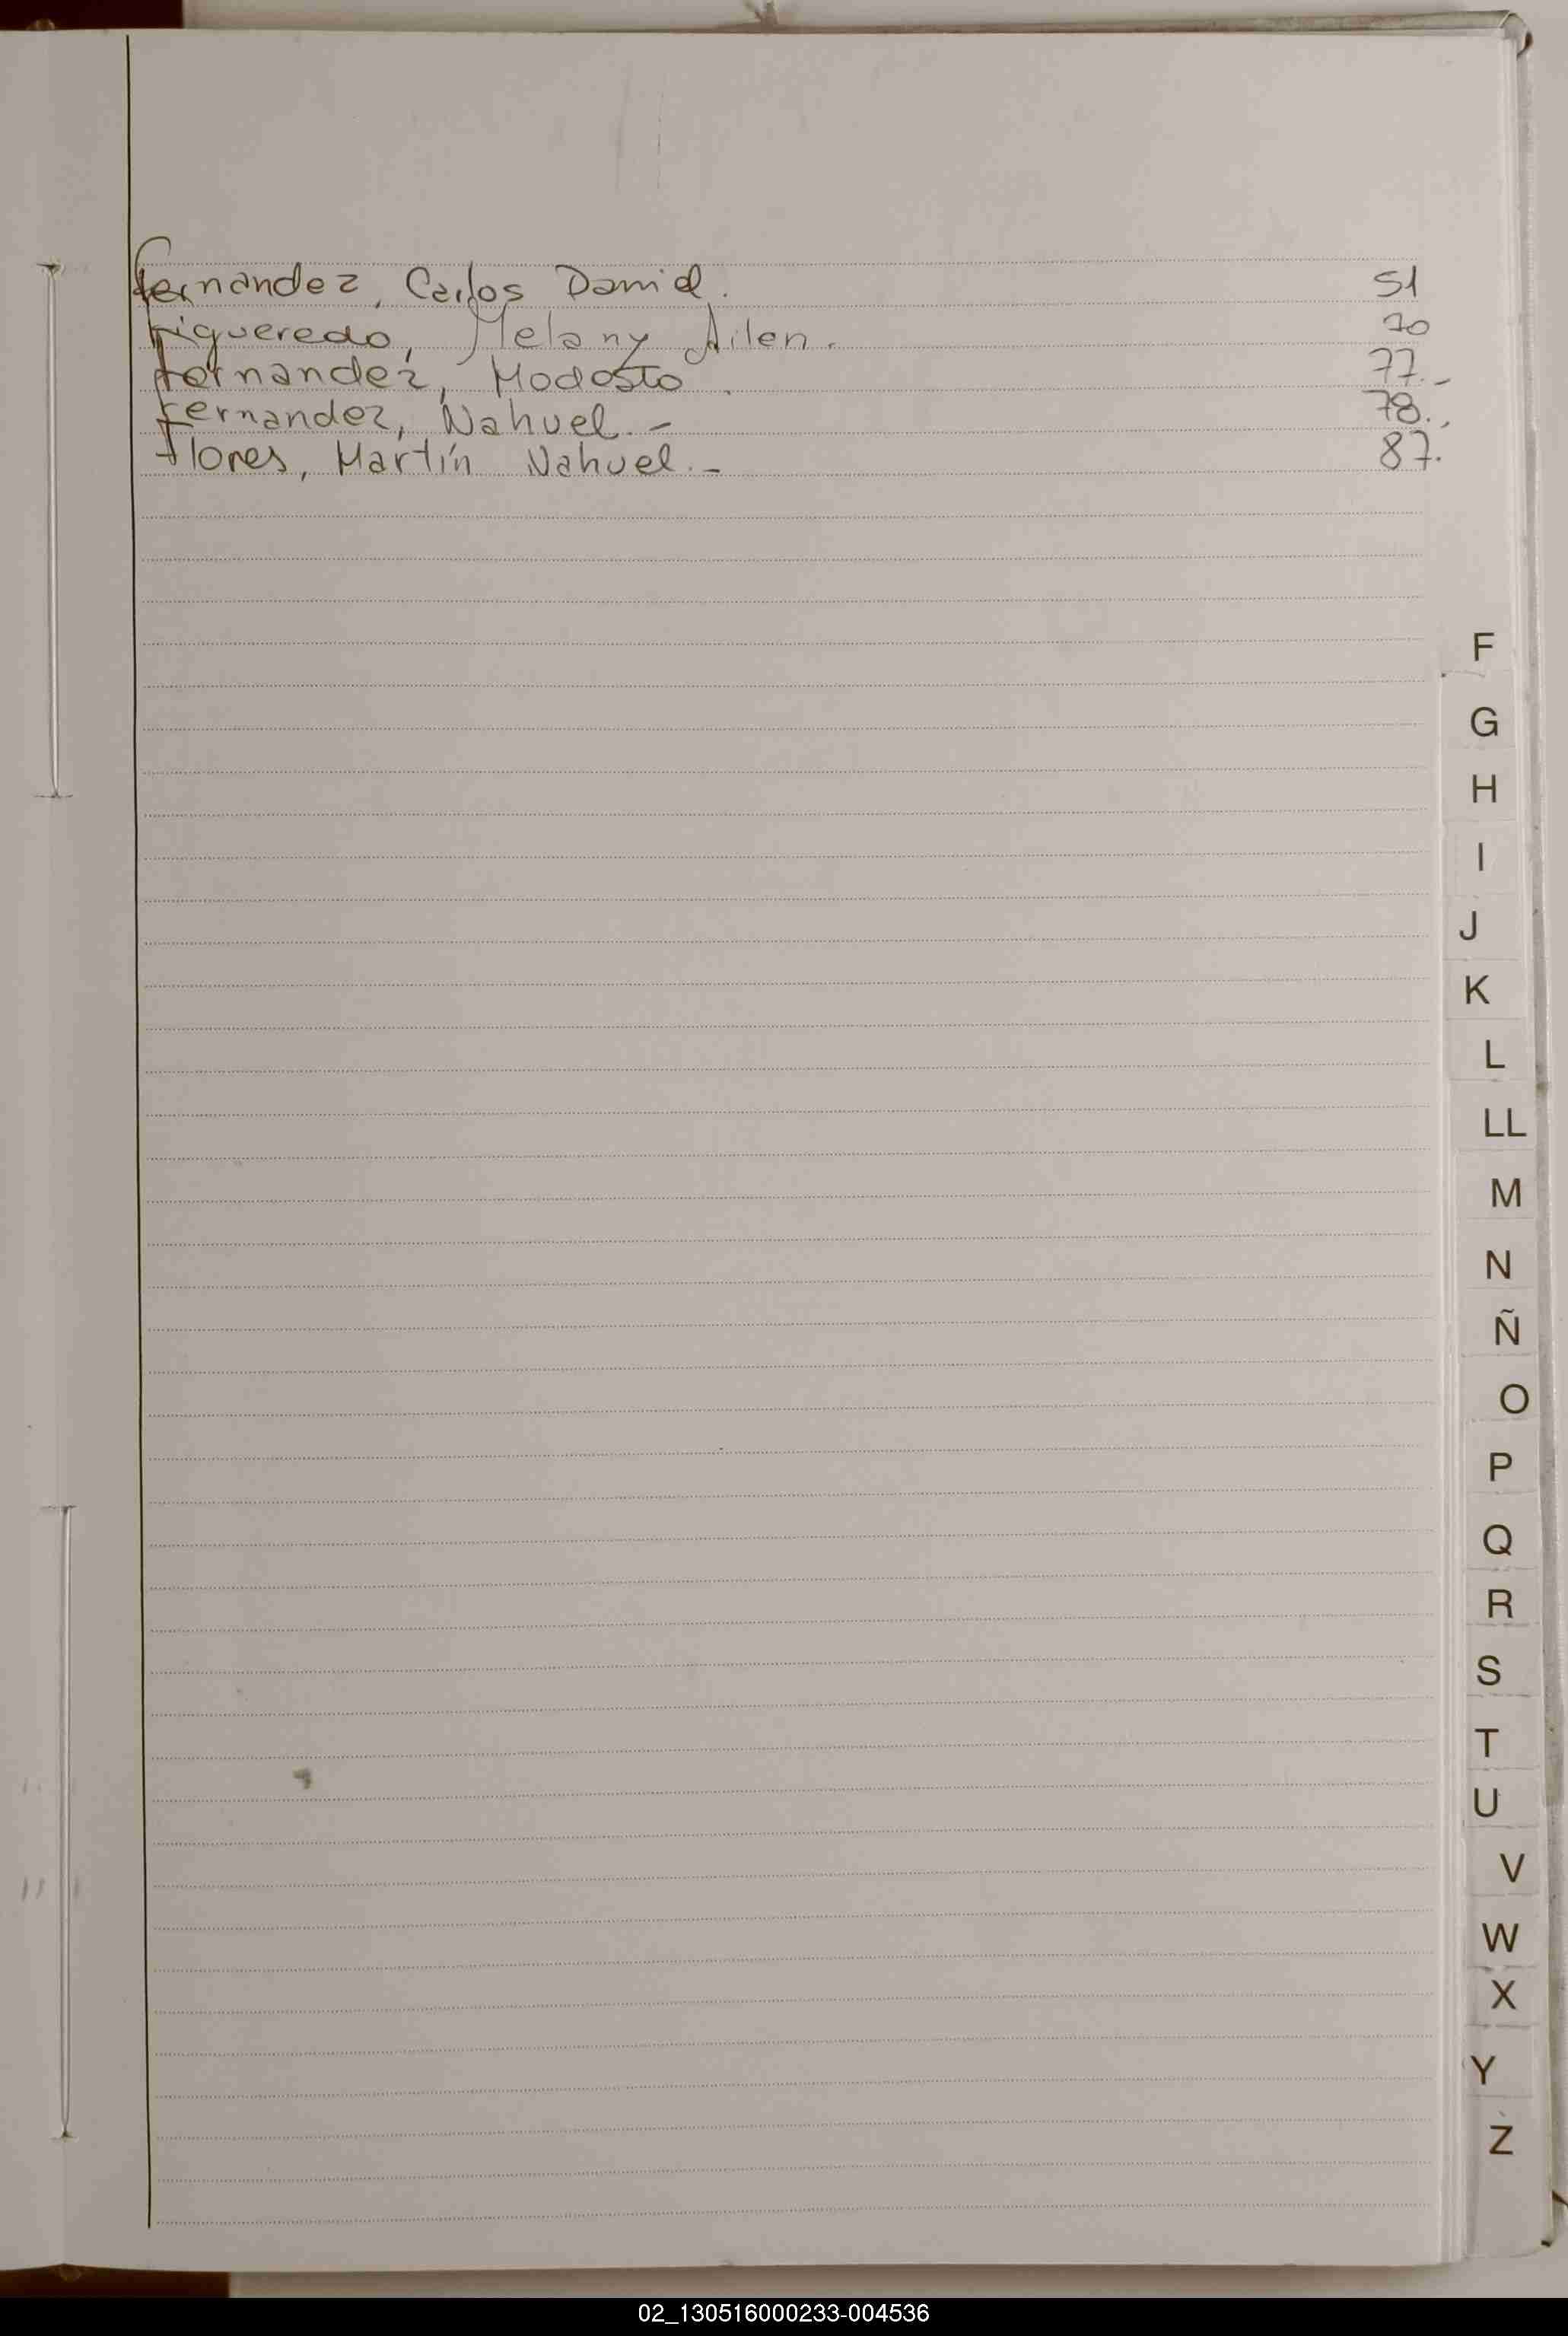 Fernandez, Carlos Daniel. 51
Figueredo, Melany Ailen. 70
Fernandez, Modesto. 77.-
Fernandez, Nahuel.- 78.-
Flores, Martín Nahuel.- 87.
F
G
H
I
J
K
L
LL
M
N
Ñ
O
P
Q
R
S
T
U
V
W
X
Y
Z
02_130516000233-004536